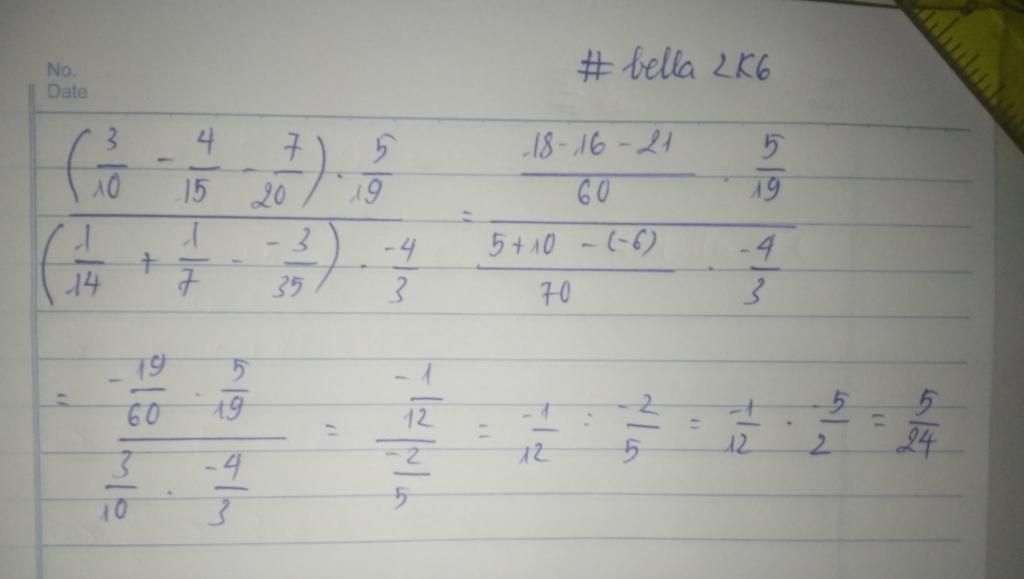 No.
Date
# bella 2K6
\frac{(\frac{3}{10} - \frac{4}{15} - \frac{7}{20}) \cdot \frac{5}{19}}{(\frac{1}{14} + \frac{1}{7} - \frac{-3}{35}) \cdot \frac{-4}{3}} = \frac{\frac{18-16-21}{60} \cdot \frac{5}{19}}{\frac{5+10-(-6)}{70} \cdot \frac{-4}{3}}
= \frac{\frac{-19}{60} \cdot \frac{5}{19}}{\frac{3}{10} \cdot \frac{-4}{3}} = \frac{\frac{-1}{12}}{\frac{-2}{5}} = \frac{-1}{12} : \frac{-2}{5} = \frac{-1}{12} \cdot \frac{-5}{2} = \frac{5}{24}